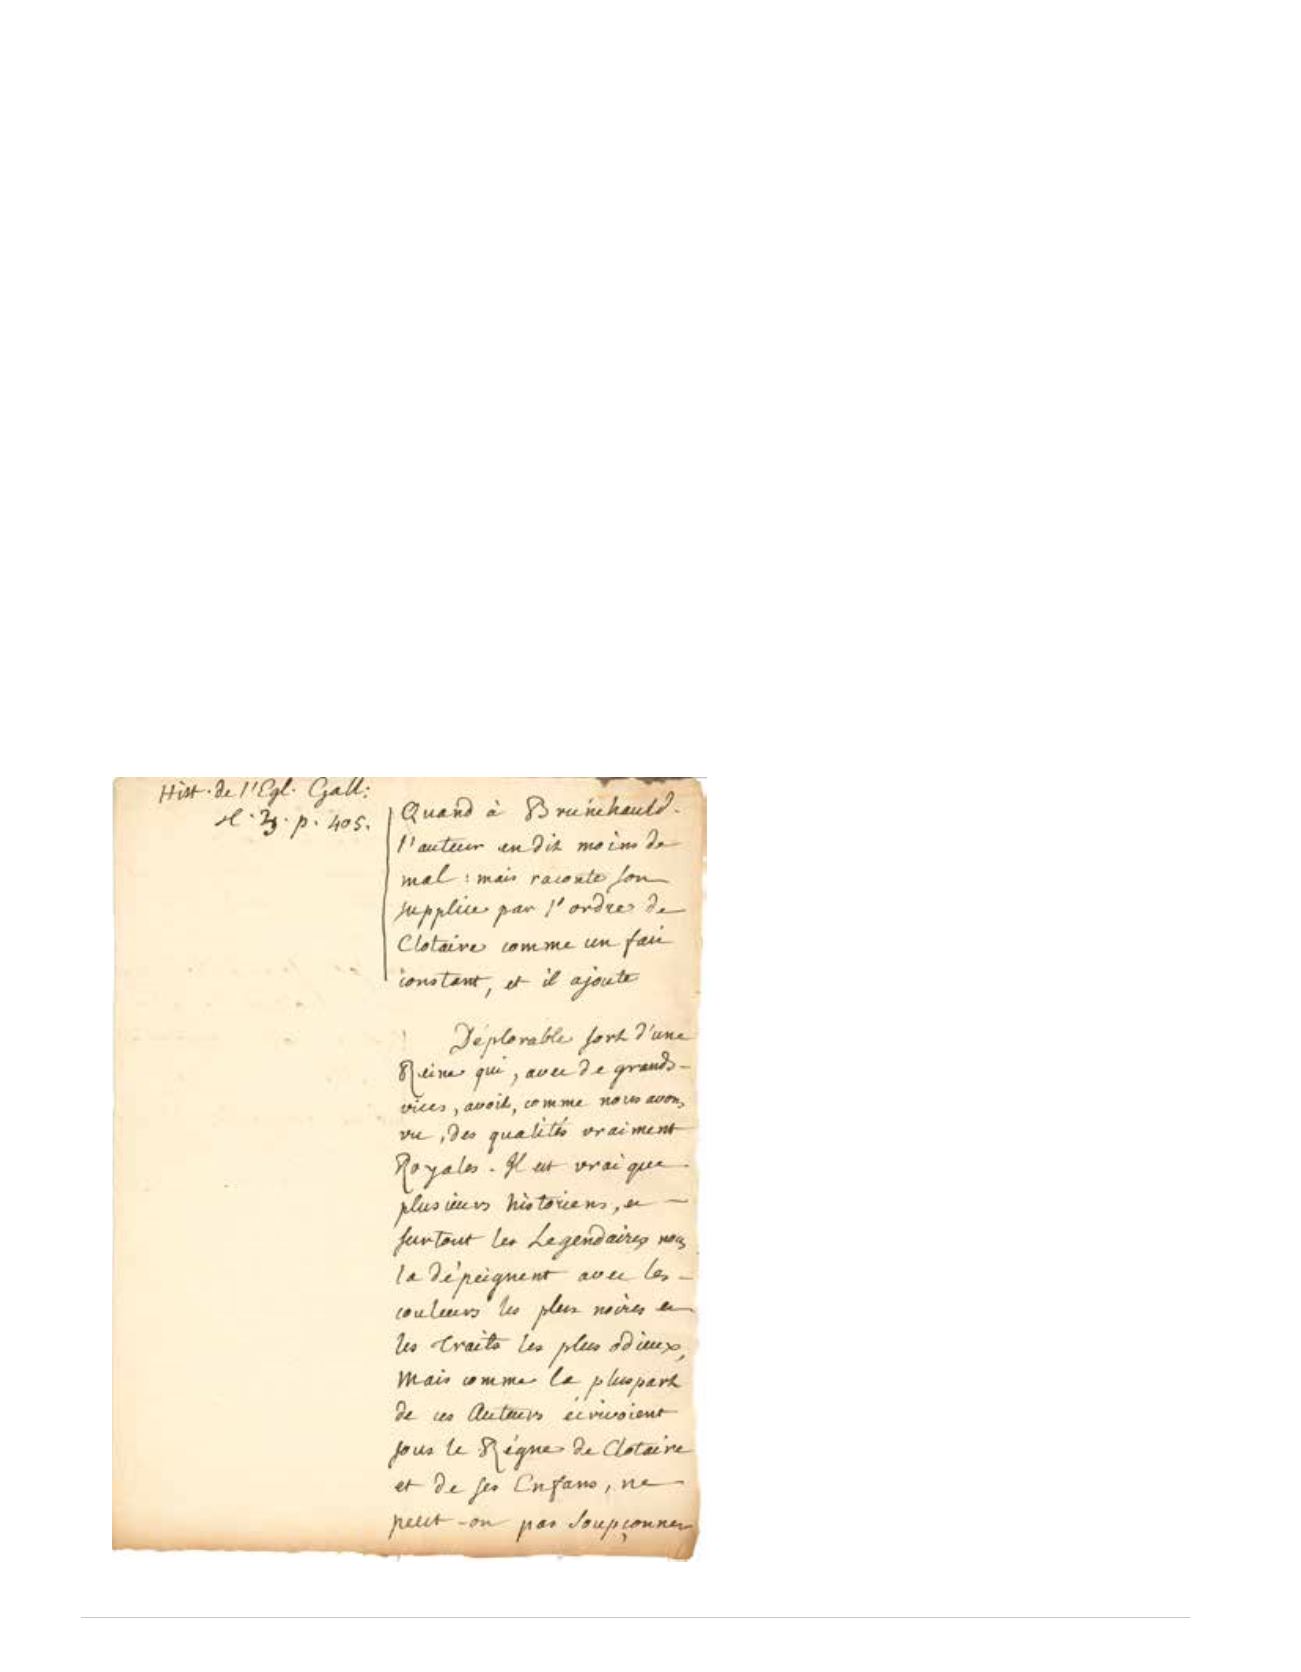 Hist. de l'Egl. Gall:
p. 405.
Quand à Brunehauld.
l'auteur en dit moins de
mal : mais raconte son
supplice par l'ordre de
Clotaire comme un fait
constant, et il ajoute
Déplorable sort d'une
Reine qui, avec de grands
vices, avoit, comme nous avons
vu, des qualités vraiment
Royales. Il est vrai que
plusieurs historiens, et
surtout les Legendaires nous
la dépeignent avec les
couleurs les plus noires et
les traits les plus odieux,
Mais comme la pluspart
de ces Auteurs écrivoient
sous le Régne de Clotaire
et de ses Enfans, ne
peut-on pas soupçonner